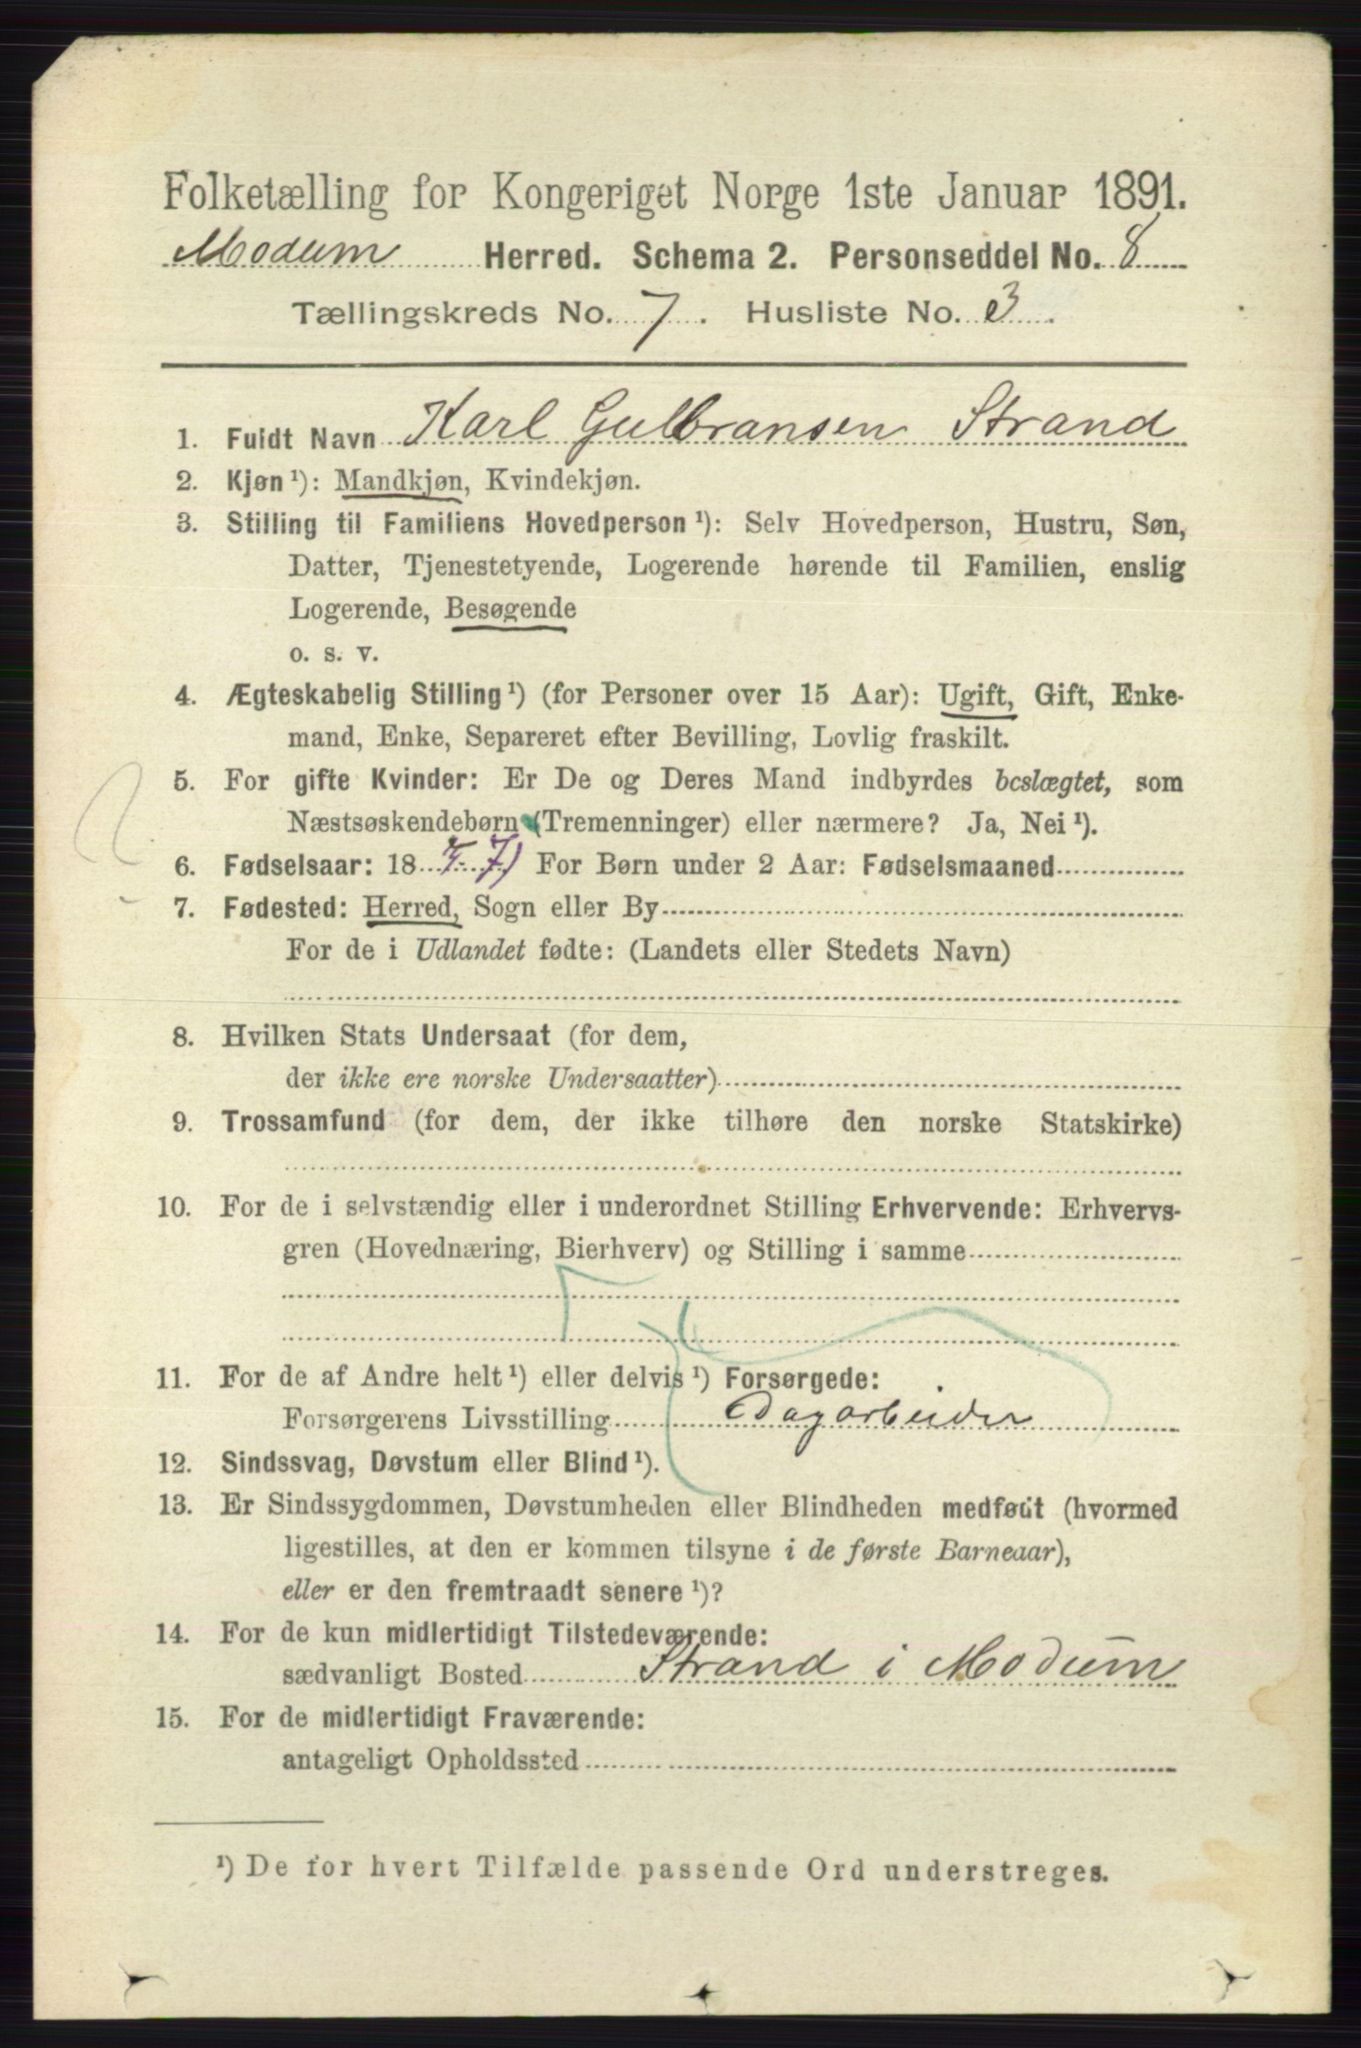 Folketælling for Kongeriget Norge 1ste Januar 1891.
Modum Herred. Schema 2. Personseddel No. 8
Tællingskreds No. 7. Husliste No. 3.
1. Fuldt Navn Karl Gulbransen Strand
2. Kjøn ¹): Mandkjøn, Kvindekjøn.
3. Stilling til Familiens Hovedperson ¹): Selv Hovedperson, Hustru, Søn,
Datter, Tjenestetyende, Logerende hørende til Familien, enslig
Logerende, Besøgende
o. s. v.
4. Ægteskabelig Stilling ¹) (for Personer over 15 Aar): Ugift, Gift, Enke-
mand, Enke, Separeret efter Bevilling, Lovlig fraskilt.
5. For gifte Kvinder: Er De og Deres Mand indbyrdes beslægtet, som
Næstsøskendebørn (Tremenninger) eller nærmere? Ja, Nei ¹).
6. Fødselsaar: 18 For Børn under 2 Aar: Fødselsmaaned
7. Fødested: Herred, Sogn eller By
For de i Udlandet fødte: (Landets eller Stedets Navn)
8. Hvilken Stats Undersaat (for dem,
der ikke ere norske Undersaatter)
9. Trossamfund (for dem, der ikke tilhøre den norske Statskirke)
10. For de i selvstændig eller i underordnet Stilling Erhvervende: Erhvervs-
gren (Hovednæring, Bierhverv) og Stilling i samme
11. For de af Andre helt ¹) eller delvis ¹) Forsørgede:
Forsørgerens Livsstilling Dagarbeider
12. Sindssvag, Døvstum eller Blind ¹).
13. Er Sindssygdommen, Døvstumheden eller Blindheden medfødt (hvormed
ligestilles, at den er kommen tilsyne i de første Barneaar),
eller er den fremtraadt senere ¹)?
14. For de kun midlertidigt Tilstedeværende:
sædvanligt Bosted Strand i Modum
15. For de midlertidigt Fraværende:
antageligt Opholdssted
¹) De for hvert Tilfælde passende Ord understreges.